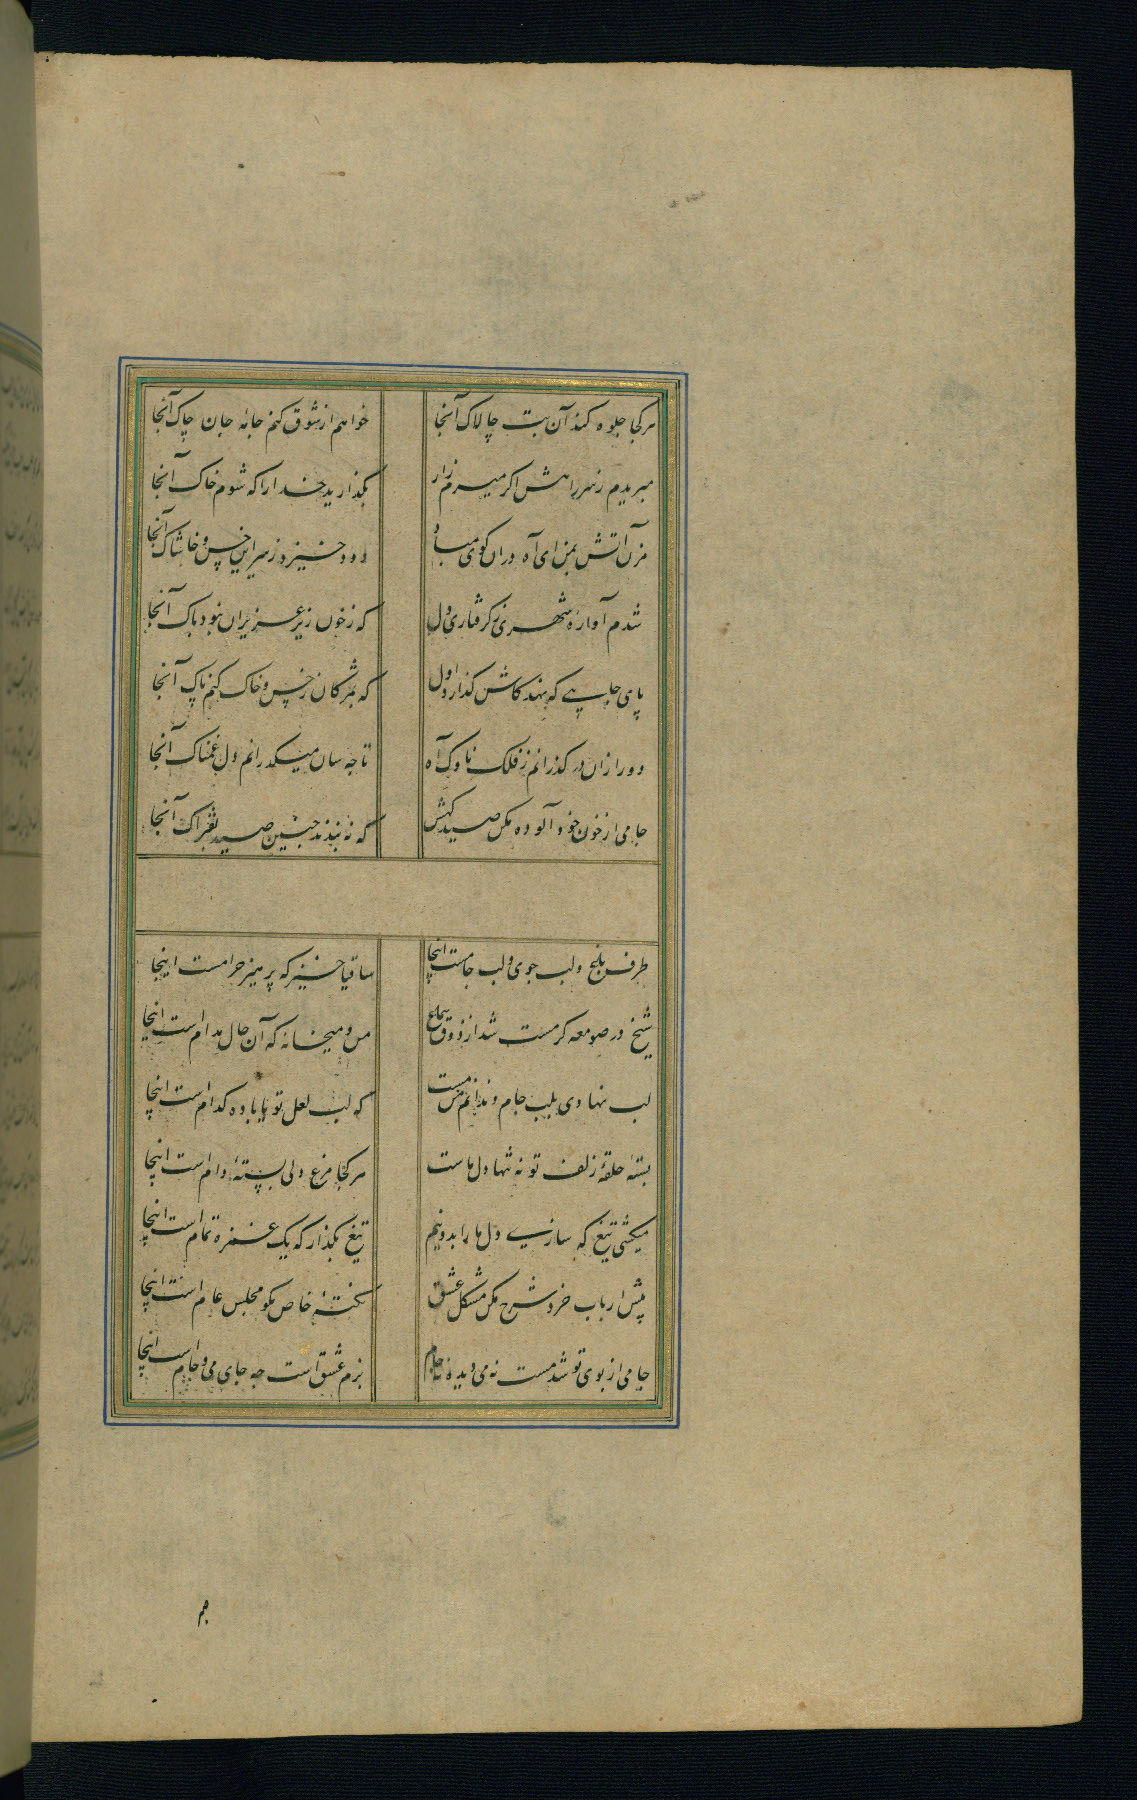 هرکجا جلوه کند آن بت چالاک آنجا خواهم از شوق کنم جامه جان چاک آنجا
میریدم ز سر راهش اگر میرم زار بگذارید خدا را که شوم خاک آنجا
مزن آتش بمن ای آه در ان کوی مباد دود خیزد ز سر این خس و خاشاک آنجا
شدم آواره شهری ز گرفتاری دل که ز خون ریز عزیزان نبود باک آنجا
پای جایی که نهد کاش گذارد اول که بمژگان ز خس و خاک کنم پاک آنجا
دور ازان در گذرانم ز فلک ناوک آه تا چه سان میگذرانم دل غمناک آنجا
جامی از خون خود آلوده مکن صیدگهش که نه بندند چنین صید بفتراک آنجا
طرف باغ و لب جوی و لب جامست اینجا ساقیا خیز که پرهیز حرامست اینجا
شیخ در صومعه گر مست شد از ذوق سماع من و میخانه که آن حال مدام است اینجا
لب نهادی بلب جام و ندانم من مست که لب لعل تو یا باده کدام است اینجا
بسته حلقه زلف تو نه تنها دل ماست هر کجا مرغ دلی بسته دام است اینجا
میکشی تیغ که سازی دل ما را بدو نیم تیغ بگذار که یک غمزه تمام است اینجا
پیش ارباب خرد شرح مکن مشکل عشق نکته خاص مگو مجلس عام است اینجا
جامی از بوی تو شد مست نه می دیده نه جام بزم عشق است چه جای می و جام است اینجا